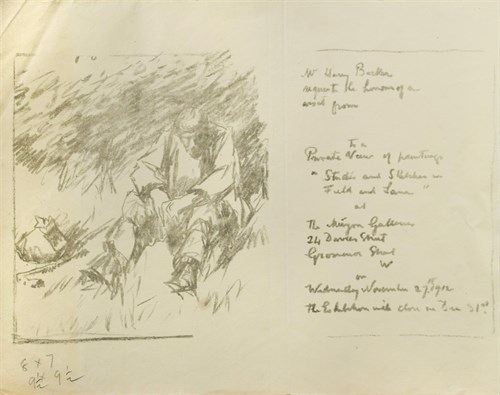 Mr Harry Becker
requests the honour of a
visit from
To a
Private View of paintings
"Studies and Sketches in
Field and Lane"
at
The Galleries
24 Davies Street
Grosvenor
W
on
Wednesday November 27 1902
The Exhibition will close on Dec 31st
8 x 7
9½ 9½